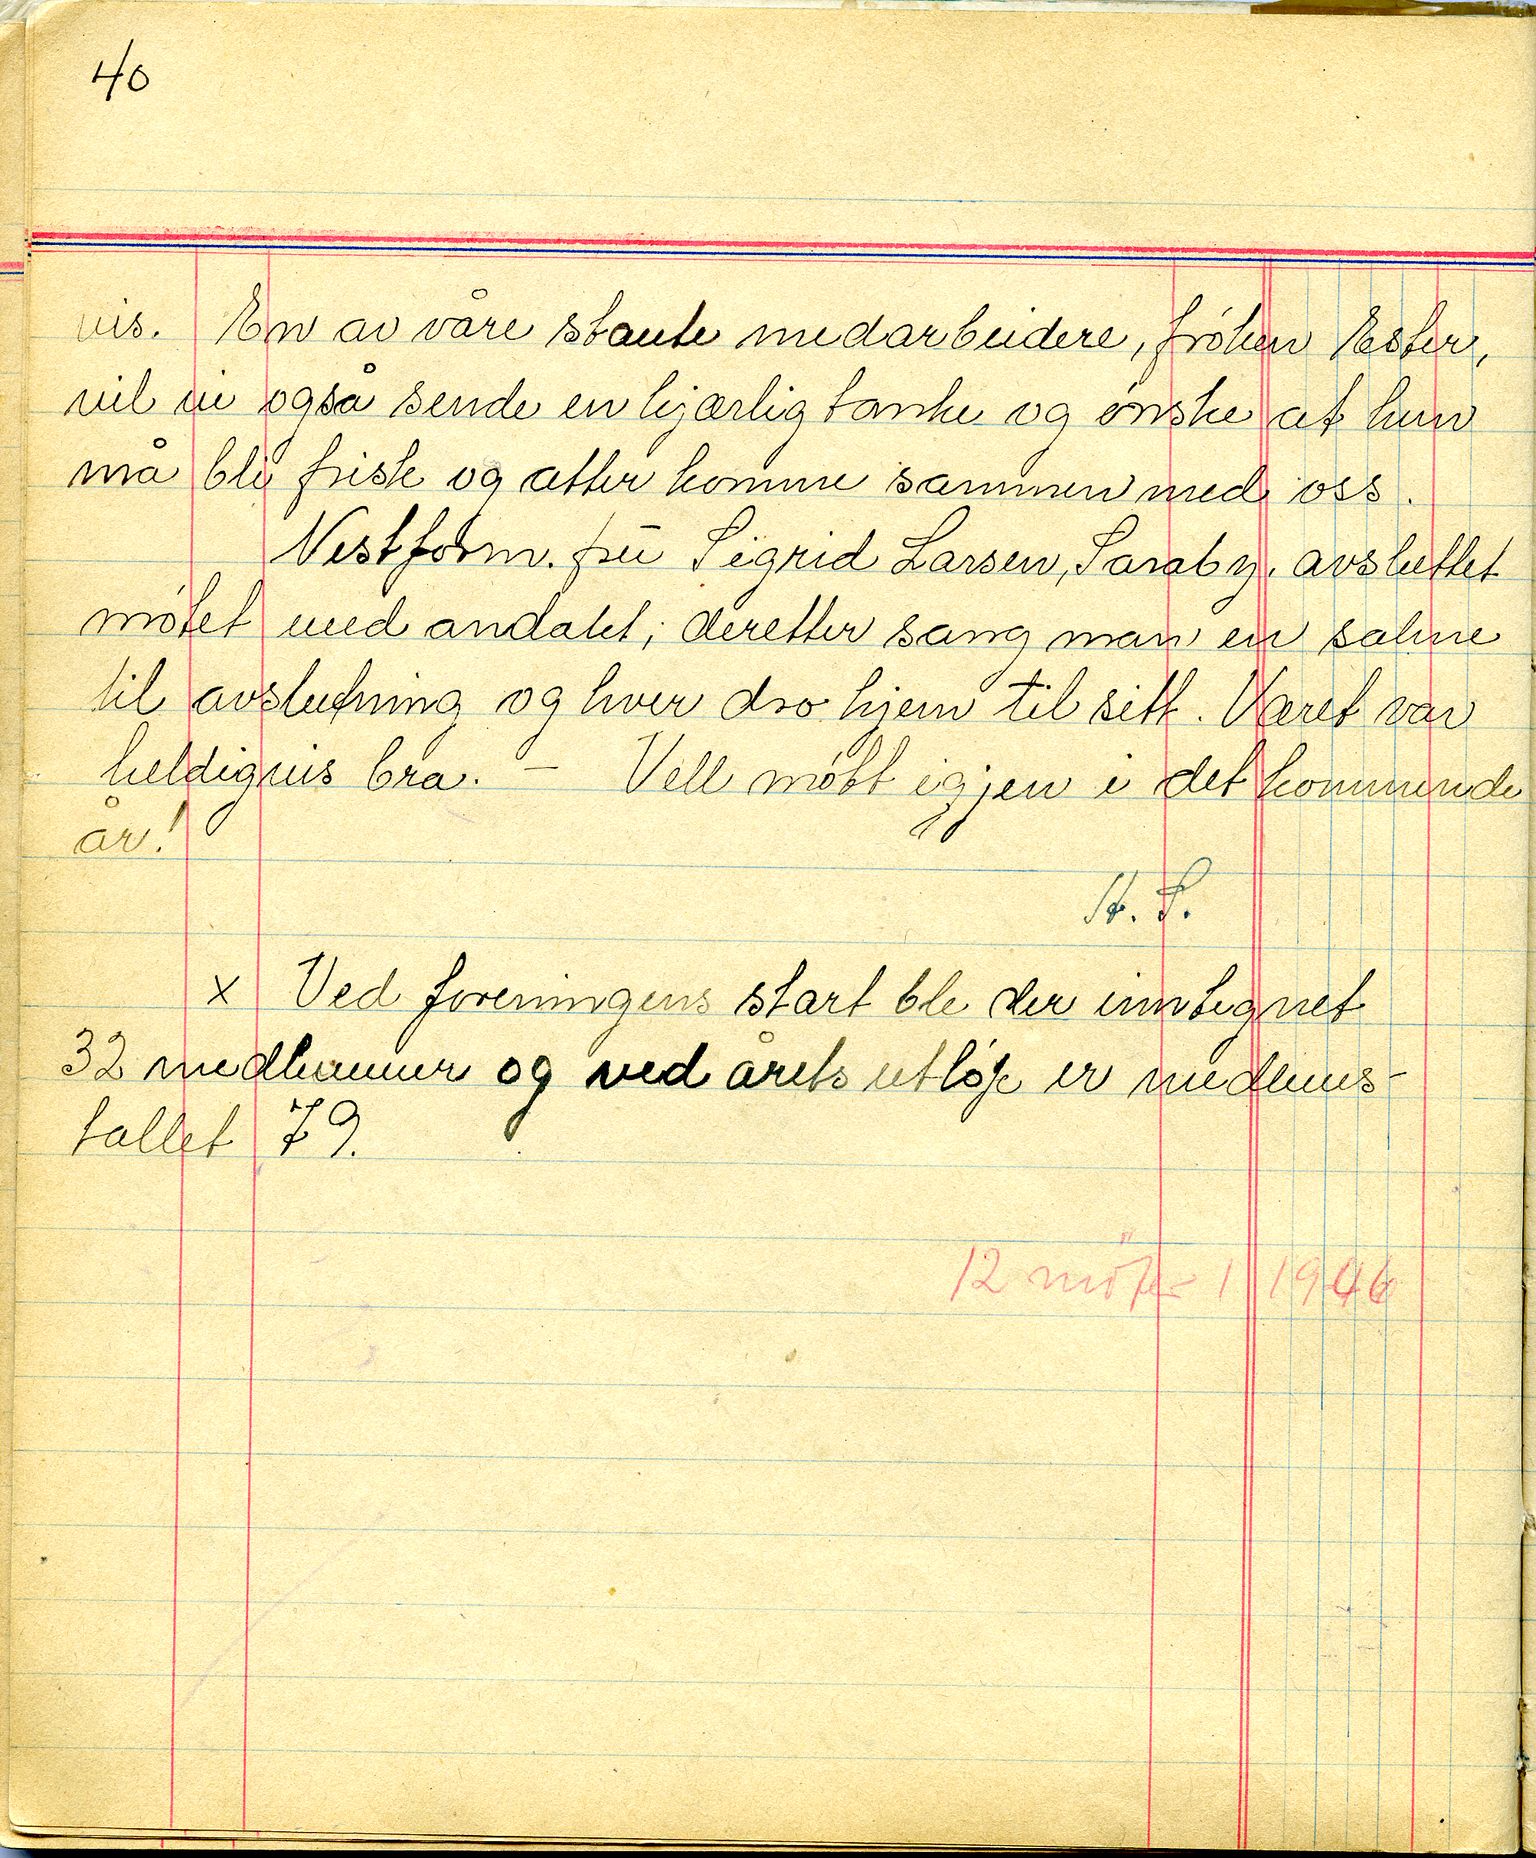 40
vis. En av våre staute medarbeidere, frøken Ester,
vil vi også sende en kjærlig tanke og ønske at hun
må bli frisk og atter komme sammen med oss.
Nestform. frū Sigrid Larsen, Saraby, avsluttet
møtet med andakt; deretter sang man en salme
til avslutning og hver dro hjem til sitt. Været var
heldigvis bra. – Vell møtt igjen i det kommende
år!
H. S.
x Ved foreningens start ble der inntegnet
32 medlemmer og ved årets utløp er medlems-
tallet 79.
12 møter i 1946